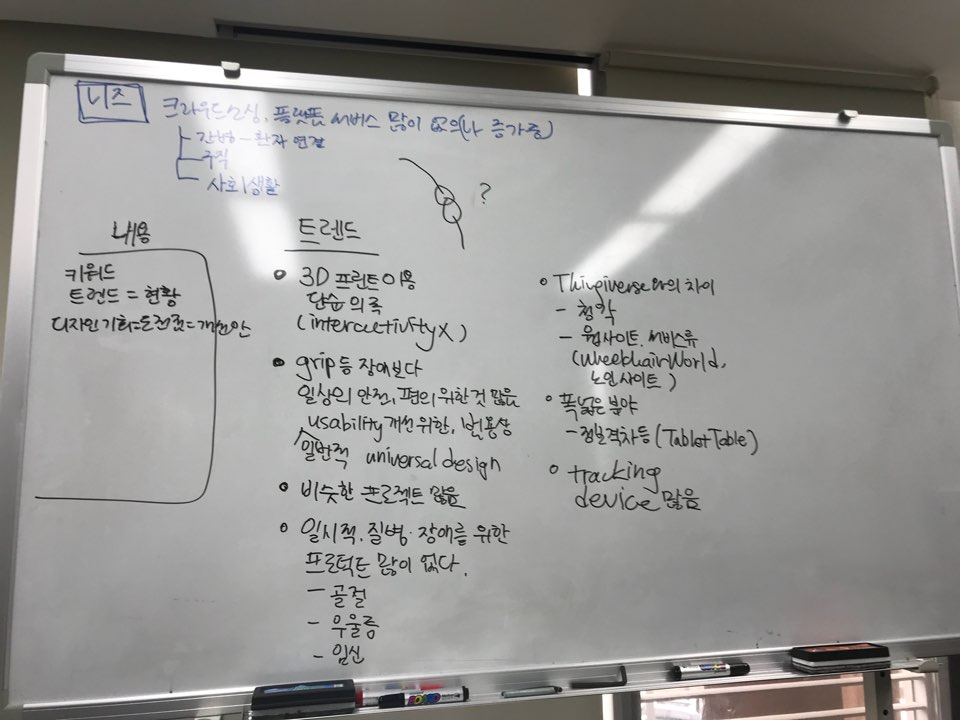 니즈
크라우드소싱, 플랫폼 서비스 많이 없으(나 증가중)
간병 - 환자 연결
구직
사회생활
?
내용
키워드
트렌드 = 현황
디자인 기회=도전점=개선안
트렌드
• 3D 프린트 이용
단순 의족
(interactivity X)
• grip 등 장애보다
일상의 안전, 편의 위한 것 많음
usability 개선 위한, 범용상
일반적 universal design
• 비슷한 프로젝트 많음
• 일시적, 질병·장애를 위한
프로덕트 많이 없다.
- 골절
- 우울증
- 임신
• Thingiverse와의 차이
- 청각
- 웹사이트, 서비스류
(WheelchairWorld,
노인 사이트)
• 폭넓은 분야
- 정보격차 등 (Tablet Table)
• tracking
device 많음